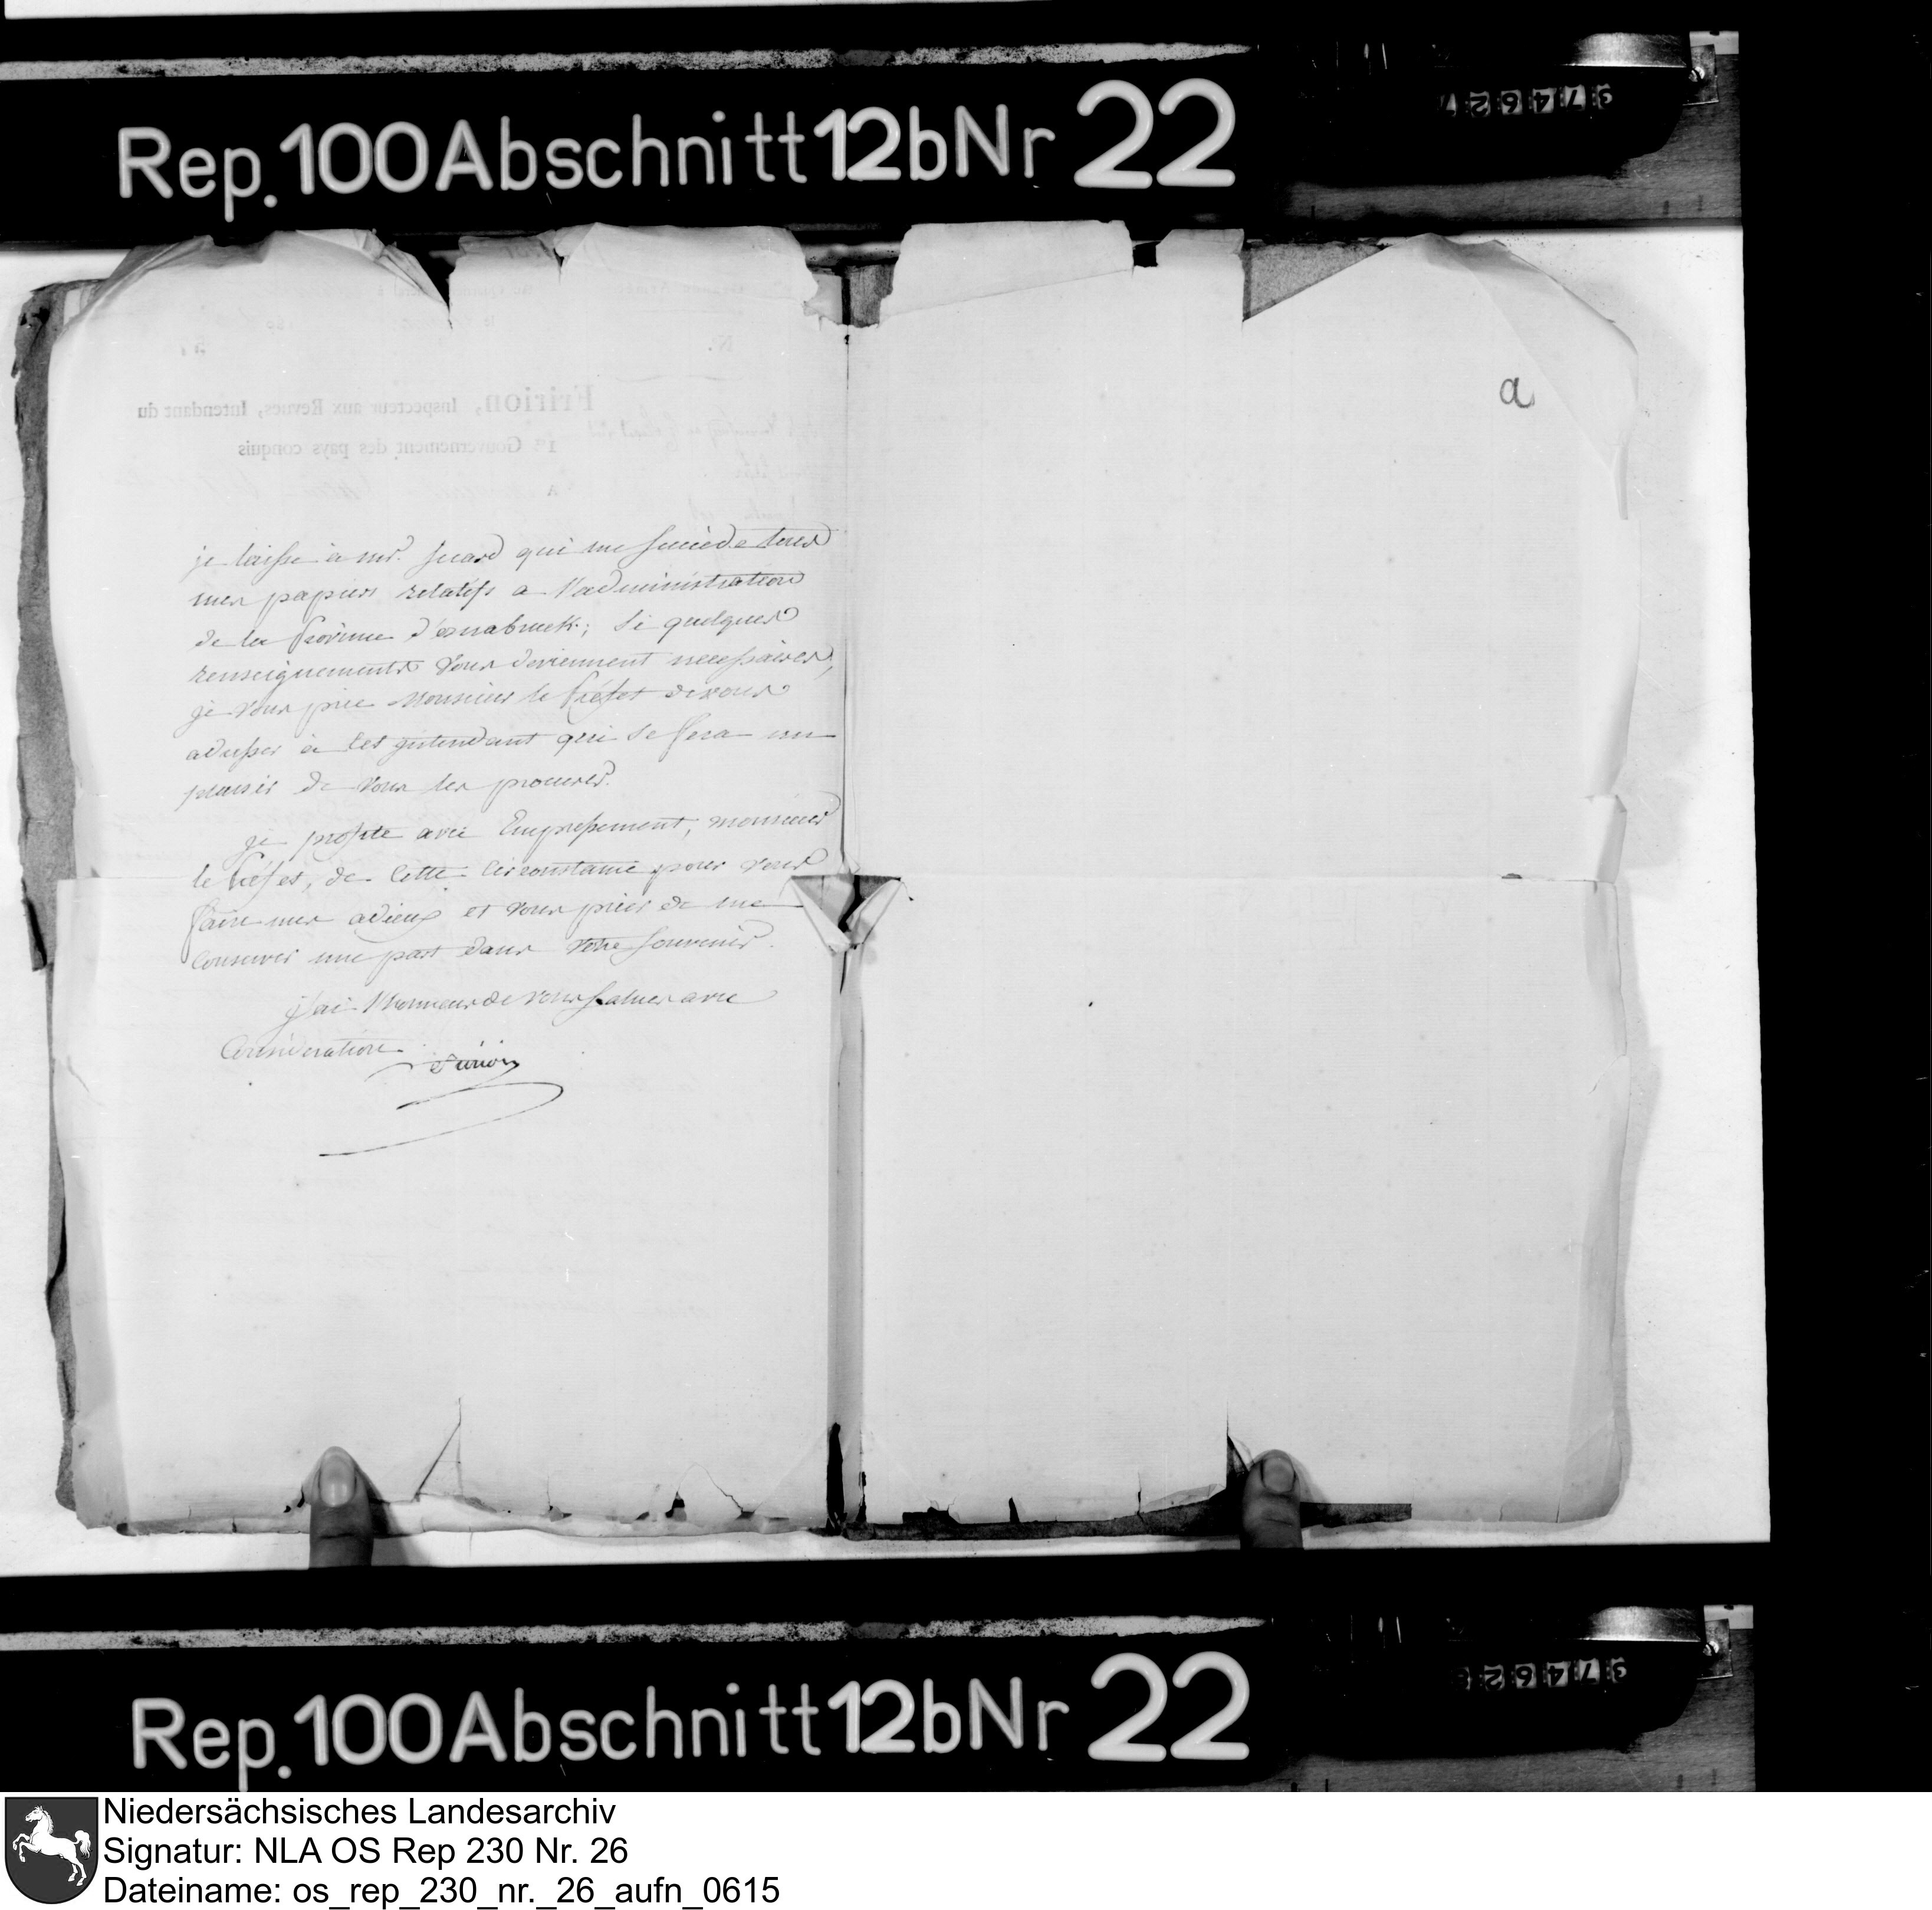 Rep. 100 Abschnitt 12b Nr 22
974627
a
Fririon, Inspecteur aux Revues, Intendant du
1er Gouvernement des pays conquis
A
je laisse à mr. Sicard qui me succède tous
mes papiers relatifs a l'administration
de la province d'osnabruck; si quelques
renseignements vous deviennent necessaires,
je vous prie Monsieur le Préfet de vous
adresser à cet intendant qui se fera un
plaisir de vous les procurer.
je profite avec Empressement, monsieur
le Préfet, de cette circonstance pour vous
faire mes adieux et vous prier de me
conserver une part dans votre souvenir.
j'ai l'honneur de vous saluer avec
Consideration.
Fririon
Rep. 100 Abschnitt 12b Nr 22
Niedersächsisches Landesarchiv
Signatur: NLA OS Rep 230 Nr. 26
Dateiname: os_rep_230_nr._26_aufn_0615